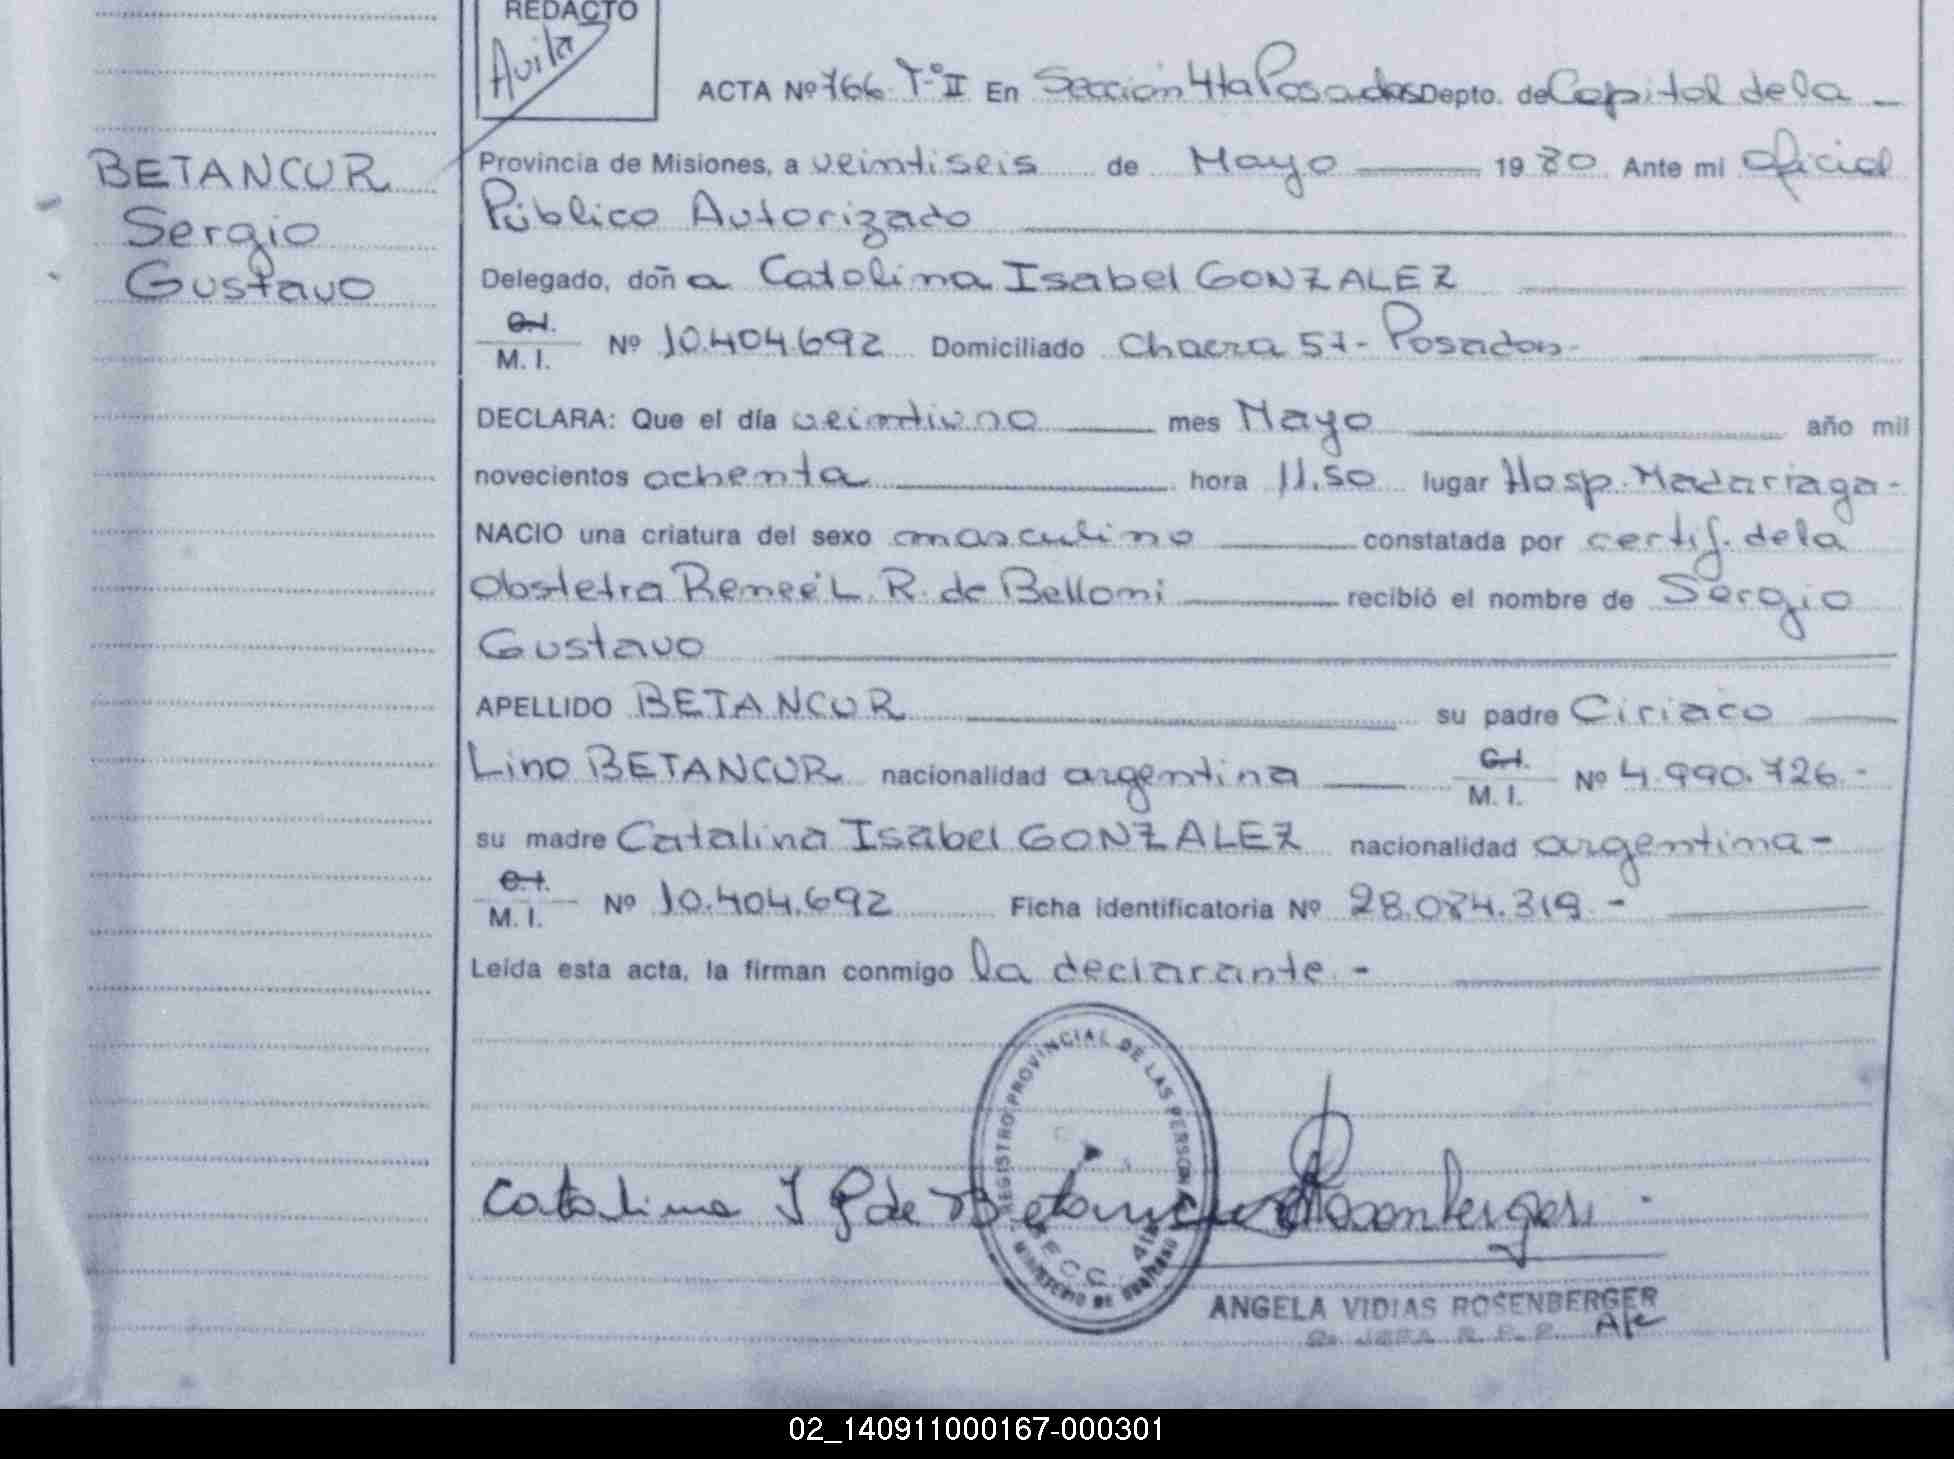 REDACTO
Avila
ACTA Nº 766 Tº II En Sección 4ta Posadas Depto. de Capital de la -
BETANCUR
Sergio
Gustavo
Provincia de Misiones, a veintiseis de Mayo 1980 Ante mi Oficial
Público Autorizado
Delegado, doña Catalina Isabel GONZALEZ
C.I.
M. I. Nº 10.404.692 Domiciliado Chacra 57 - Posadas -
DECLARA: Que el día veintiuno mes Mayo año mil
novecientos ochenta hora 11,50 lugar Hosp. Madariaga -
NACIO una criatura del sexo masculino constatada por certif. de la
Obstetra Reneé L. R. de Belloni recibió el nombre de Sergio
Gustavo
APELLIDO BETANCUR su padre Ciriaco
Lino BETANCUR nacionalidad argentina C.I. M. I. Nº 4.990.726.-
su madre Catalina Isabel GONZALEZ nacionalidad argentina -
C.I.
M. I. Nº 10.404.692 Ficha identificatoria Nº 28.084.319.-
Leída esta acta, la firman conmigo la declarante.-
REGISTRO PROVINCIAL DE LAS PERSONAS
SECC. 4ta
MINISTERIO DE GOBIERNO
Catalina I G de Betancur Rosenberger
ANGELA VIDIAS ROSENBERGER
A/c
02_140911000167-000301